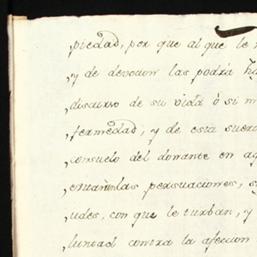 piedad, por que al que le
, y de devocion las podrá
discurso de su vida ó si
, fermedad, y de esta suer
, consuelo del donante en
las persuaciones,
udes, con que le turban, y
luntad contra la afeccion